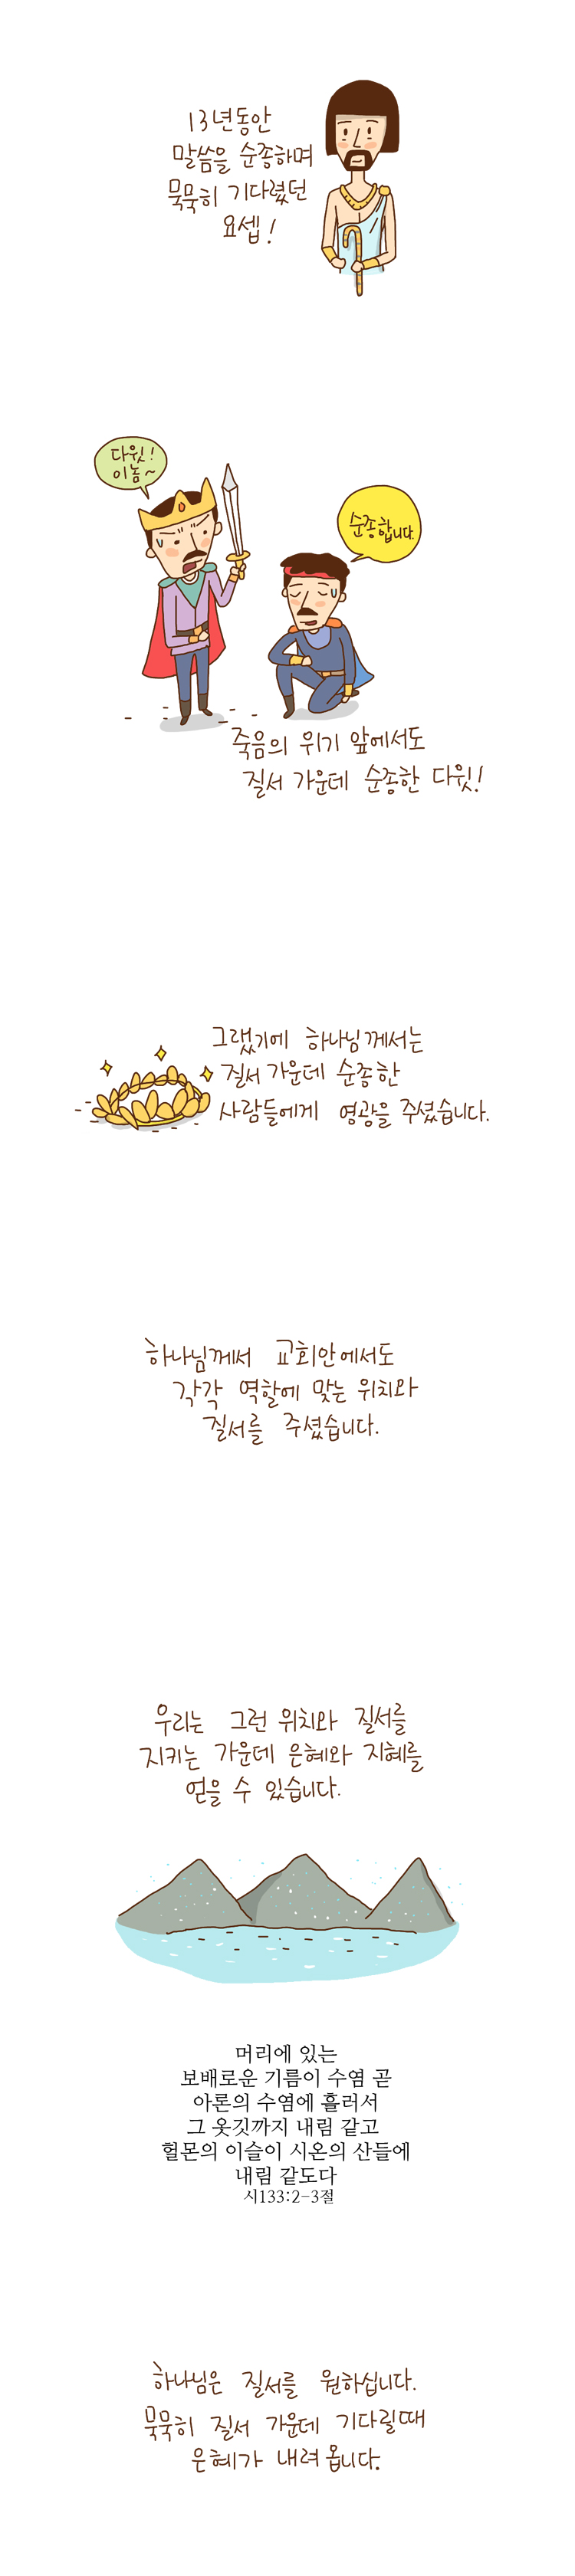 13년동안
말씀을 순종하며
묵묵히 기다렸던
요셉!
다윗!
이놈~
순종합니다.
죽음의 위기 앞에서도
질서 가운데 순종한 다윗!
그랬기에 하나님께서는
질서 가운데 순종한
사람들에게 영광을 주셨습니다.
하나님께서 교회안에서도
각각 역할에 맞는 위치와
질서를 주셨습니다.
우리는 그런 위치와 질서를
지키는 가운데 은혜와 지혜를
얻을 수 있습니다.
머리에 있는
보배로운 기름이 수염 곧
아론의 수염에 흘러서
그 옷깃까지 내림 같고
헐몬의 이슬이 시온의 산들에
내림 같도다
시133:2-3절
하나님은 질서를 원하십니다.
묵묵히 질서 가운데 기다릴때
은혜가 내려옵니다.